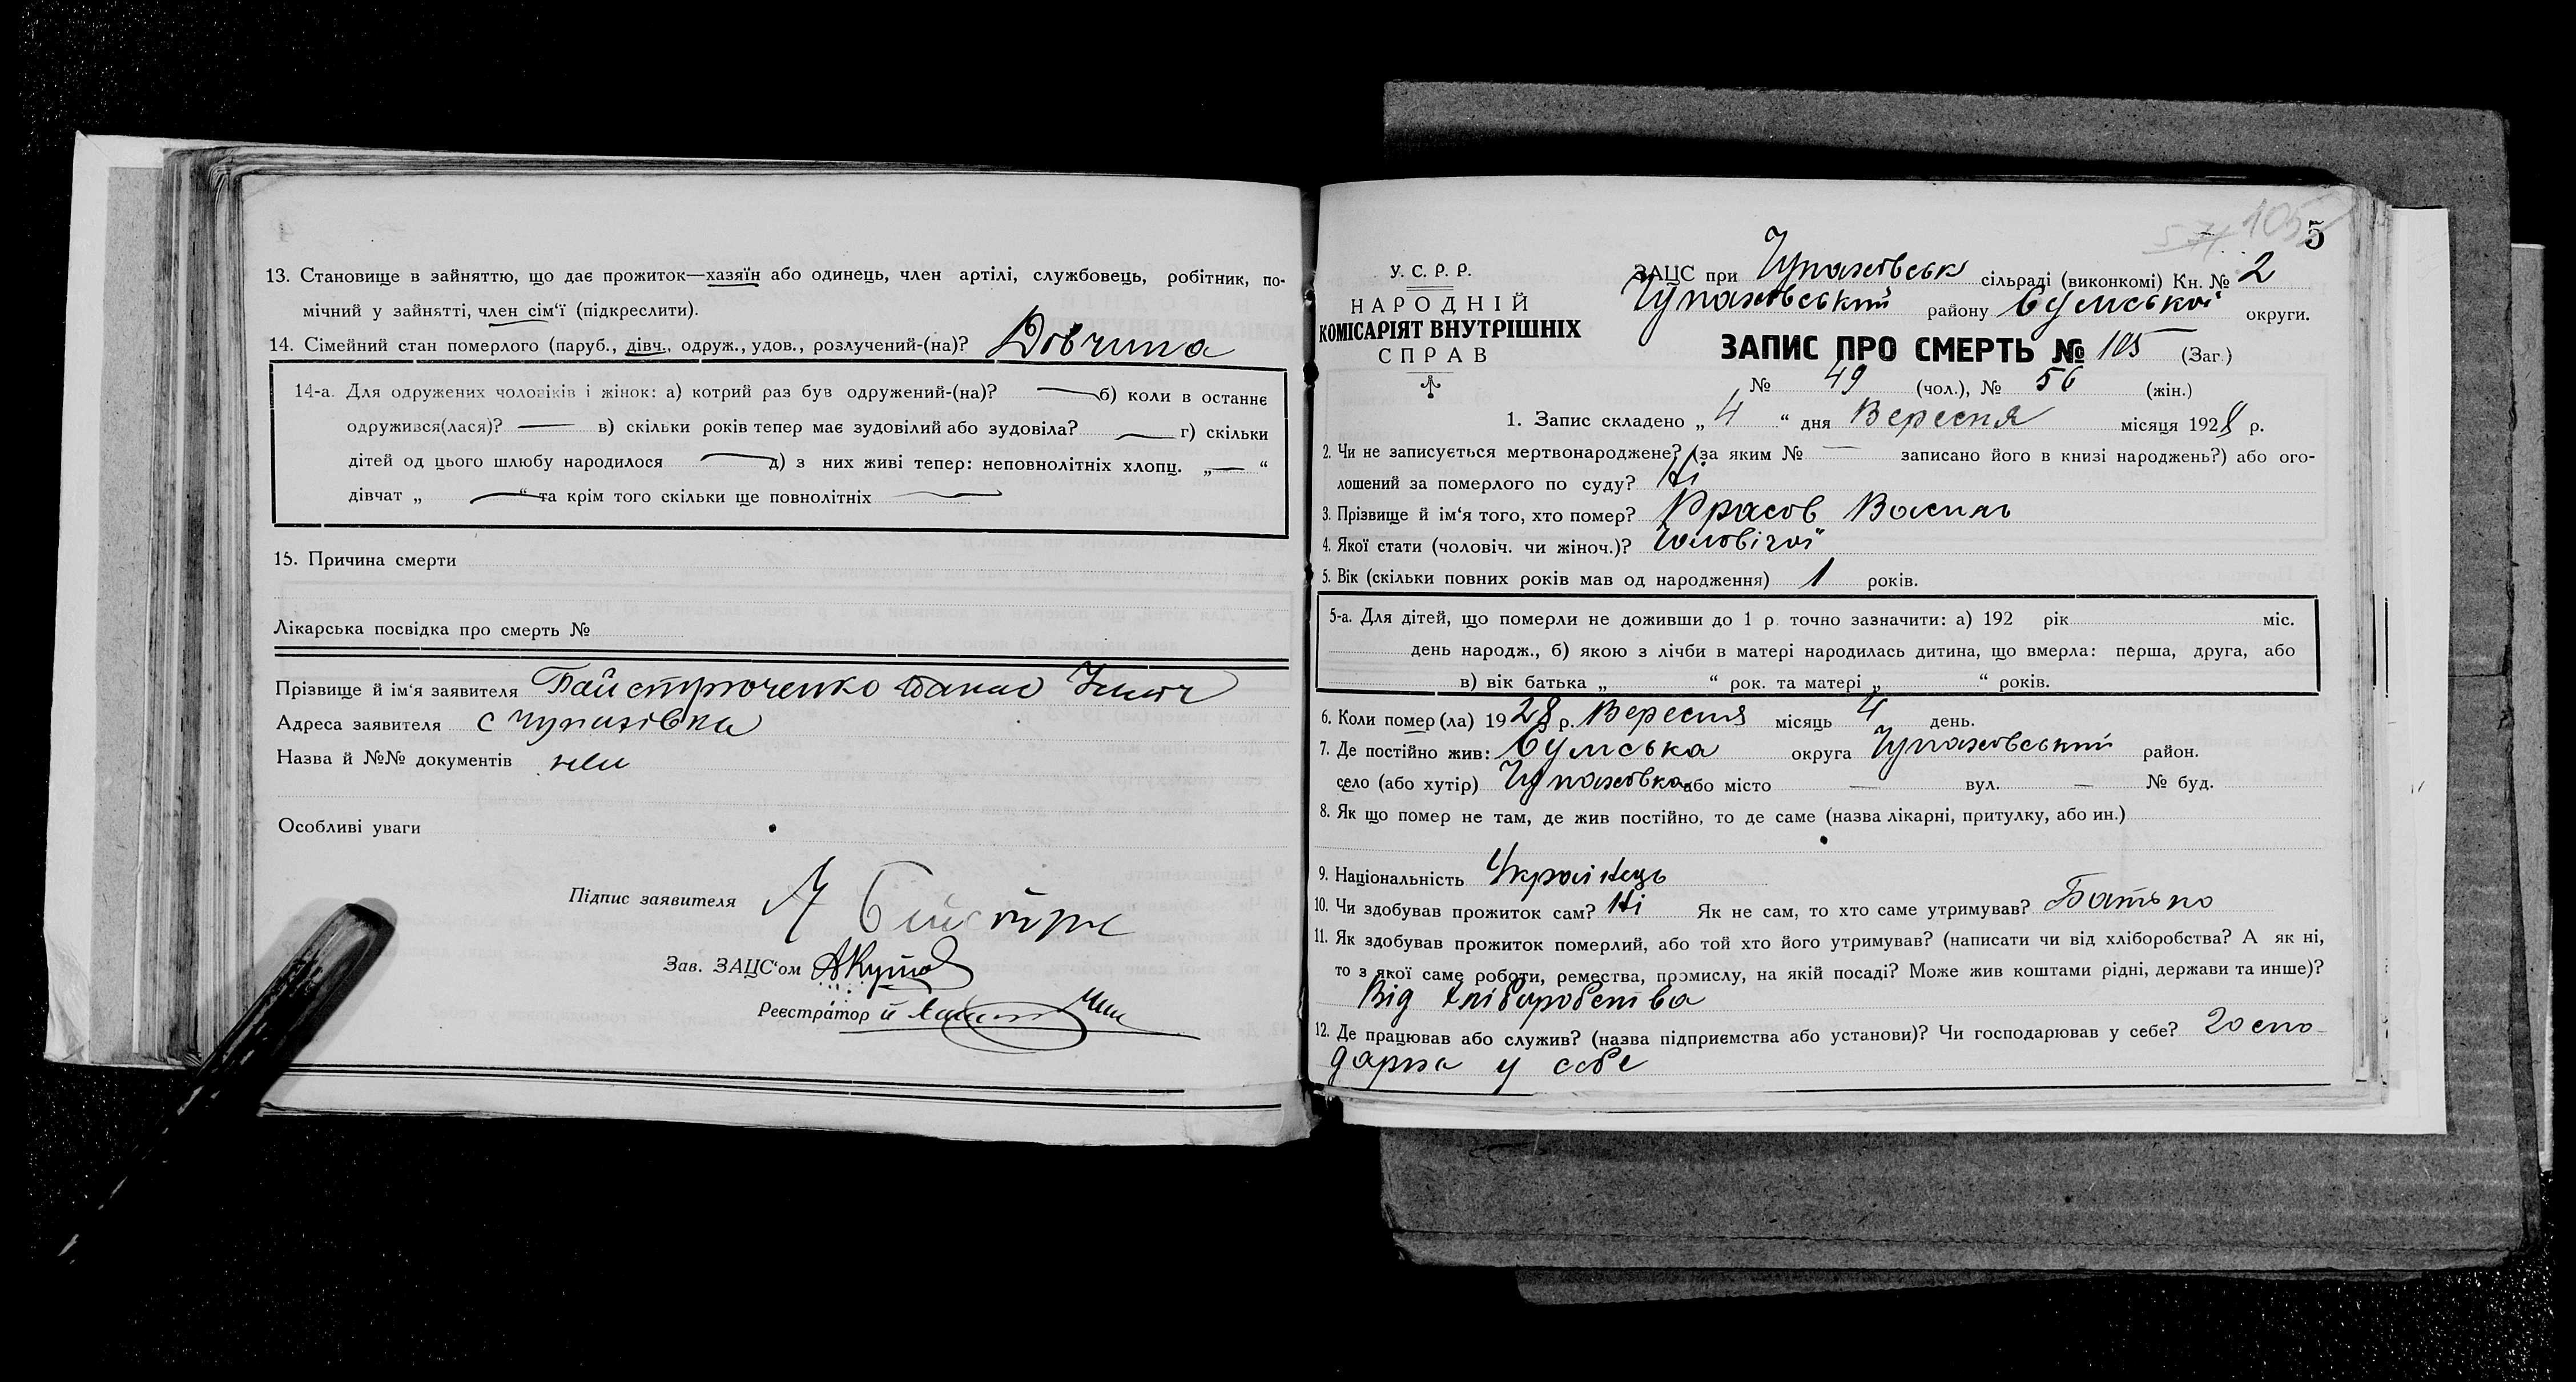 13. Становище в зайняттю, що дає прожиток—хазяїн або одинець, член артілі, службовець, робітник, по-
мічний у зайнятті, член сім‘ї (підкреслити).
14. Сімейний стан померлого (паруб., дівч., одруж., удов., розлучений-(на)? Дівчина
14-а. Для одружених чоловіків і жінок: а) котрий раз був одружений-(на)? — б) коли в останнє
одружився(лася)? — в) скільки років тепер має зудовілий або зудовіла? — г) скільки
дітей од цього шлюбу народилося — д) з них живі тепер: неповнолітніх хлопц. „—“
дівчат „—“ та крім того скільки ще повнолітніх —
15. Причина смерти
Лікарська посвідка про смерть №
Прізвище й ім‘я заявителя
Адреса заявителя с Чупахівка
Назва й №№ документів
Особливі уваги
Підпис заявителя
Зав. ЗАЦС‘ом
Реєстратор
105
5
У. С. Р. Р.
НАРОДНІЙ
КОМІСАРІЯТ ВНУТРІШНІХ
СПРАВ
ЗАЦС при Чупахівськ сільраді (виконкомі) Кн. № 2
Чупахівський району Сумської округи.
ЗАПИС ПРО СМЕРТЬ № 105 (Заг.)
№ 49 (чол.), № 56 (жін.)
1. Запис складено „ 4 “ дня Вересня місяця 1928 р.
2. Чи не записується мертвонароджене? (за яким № — записано його в книзі народжень?) або ого-
лошений за померлого по суду? Ні
3. Прізвище й ім‘я того, хто помер? Красов Василь
4. Якої стати (чоловіч. чи жіноч.)? Чоловічої
5. Вік (скільки повних років мав од народження) 1 років.
5-а. Для дітей, що померли не доживши до 1 р. точно зазначити: а) 192 рік міс.
день народж., б) якою з лічби в матері народилась дитина, що вмерла: перша, друга, або
в) вік батька „ “ рок. та матері „ “ років.
6. Коли помер(ла) 1928 р. Вересня місяць 4 день.
7. Де постійно жив: Сумська округа Чупахівський район.
село (або хутір) Чупахівка або місто — вул. — № буд.
8. Як що помер не там, де жив постійно, то де саме (назва лікарні, притулку, або ин.)
9. Національність Українець
10. Чи здобував прожиток сам? Ні Як не сам, то хто саме утримував? Батько
11. Як здобував прожиток померлий, або той хто його утримував? (написати чи від хліборобства? А як ні,
то з якої саме роботи, ремества, промислу, на якій посаді? Може жив коштами рідні, держави та инше)?
Від хліборобства
12. Де працював або служив? (назва підприємства або установи)? Чи господарював у себе? Госпо-
дарка у себе